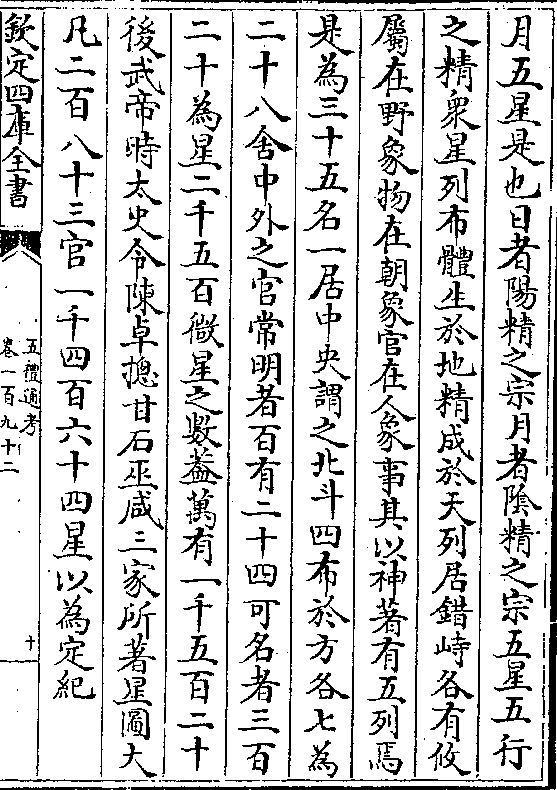 月五星是也日者陽精之宗月者陰精之宗五星五行
之精衆星列布體生於地精成於天列居錯峙各有攸
屬在野象物在朝象官在人象事其以神著有五列焉
是為三十五名一居中央謂之北斗四布於方各七為
二十八舍中外之官常明者百有二十四可名者三百
二十為星二千五百微星之數葢萬有一千五百二十
後武帝時太史令陳卓揔甘石巫咸三家所著星圖大
凡二百八十三官一千四百六十四星以為定紀
欽定四庫全書
五禮通考
卷一百九十二
十